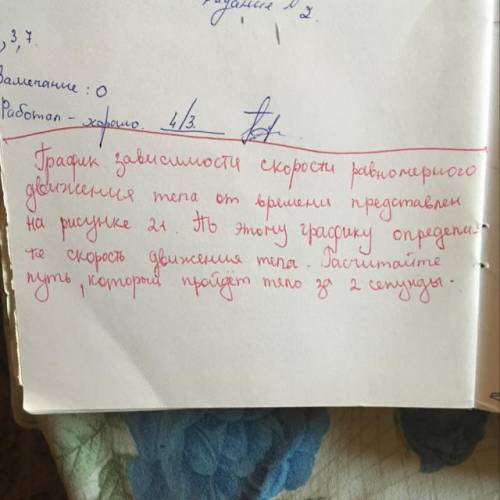 Задание № 2.
, 3, 7.
Замечание : 0
Работал - хорошо. 4/3.
График зависимости скорости равномерного
движения тела от времени представлен
на рисунке 21. По этому графику определи-
те скорость движения тела. Расчитайте
путь, который пройдёт тело за 2 секунды.